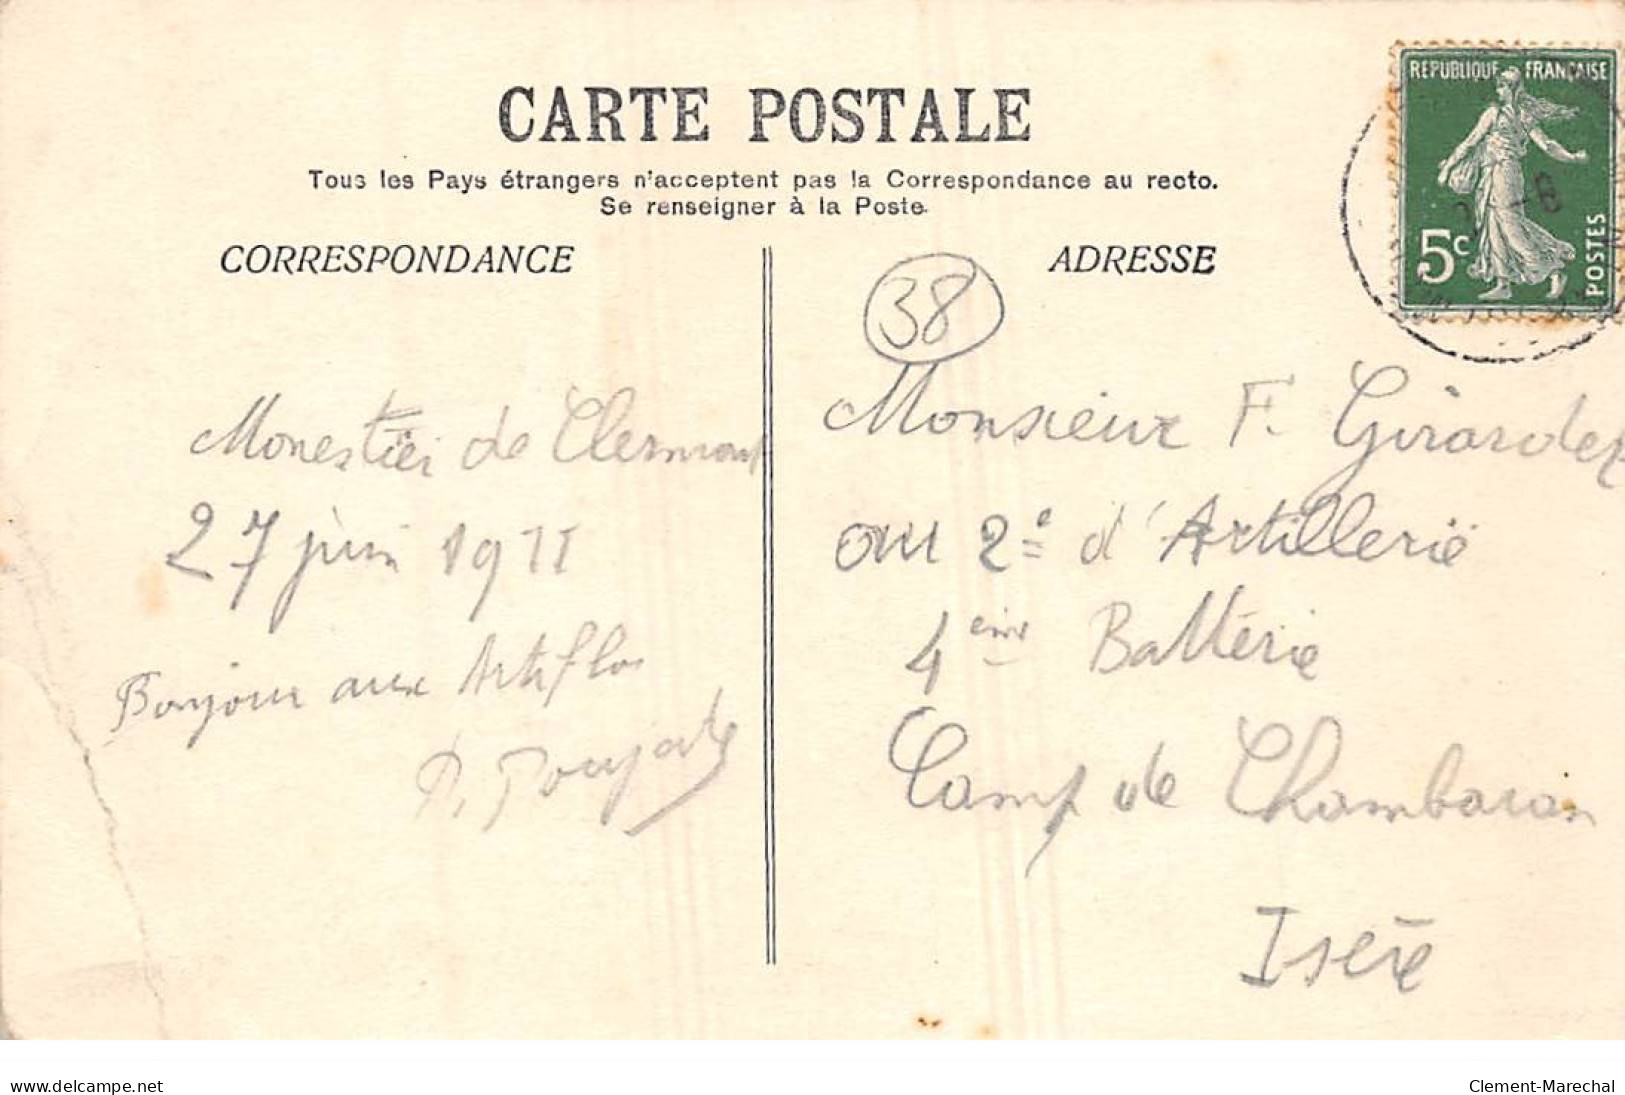 CARTE POSTALE
Tous les Pays étrangers n'acceptent pas la Correspondance au recto.
Se renseigner à la Poste.
CORRESPONDANCE
ADRESSE
REPUBLIQUE FRANÇAISE
5c
POSTES
38
Monestier de Clermont
27 juin 1911
Bonjour aux Artiflos
Monsieur F. Girardet
au 2e d'Artillerie
4ème Battérie
Camp de Chambaran
Isère
delcampe.net
Clement-Marechal